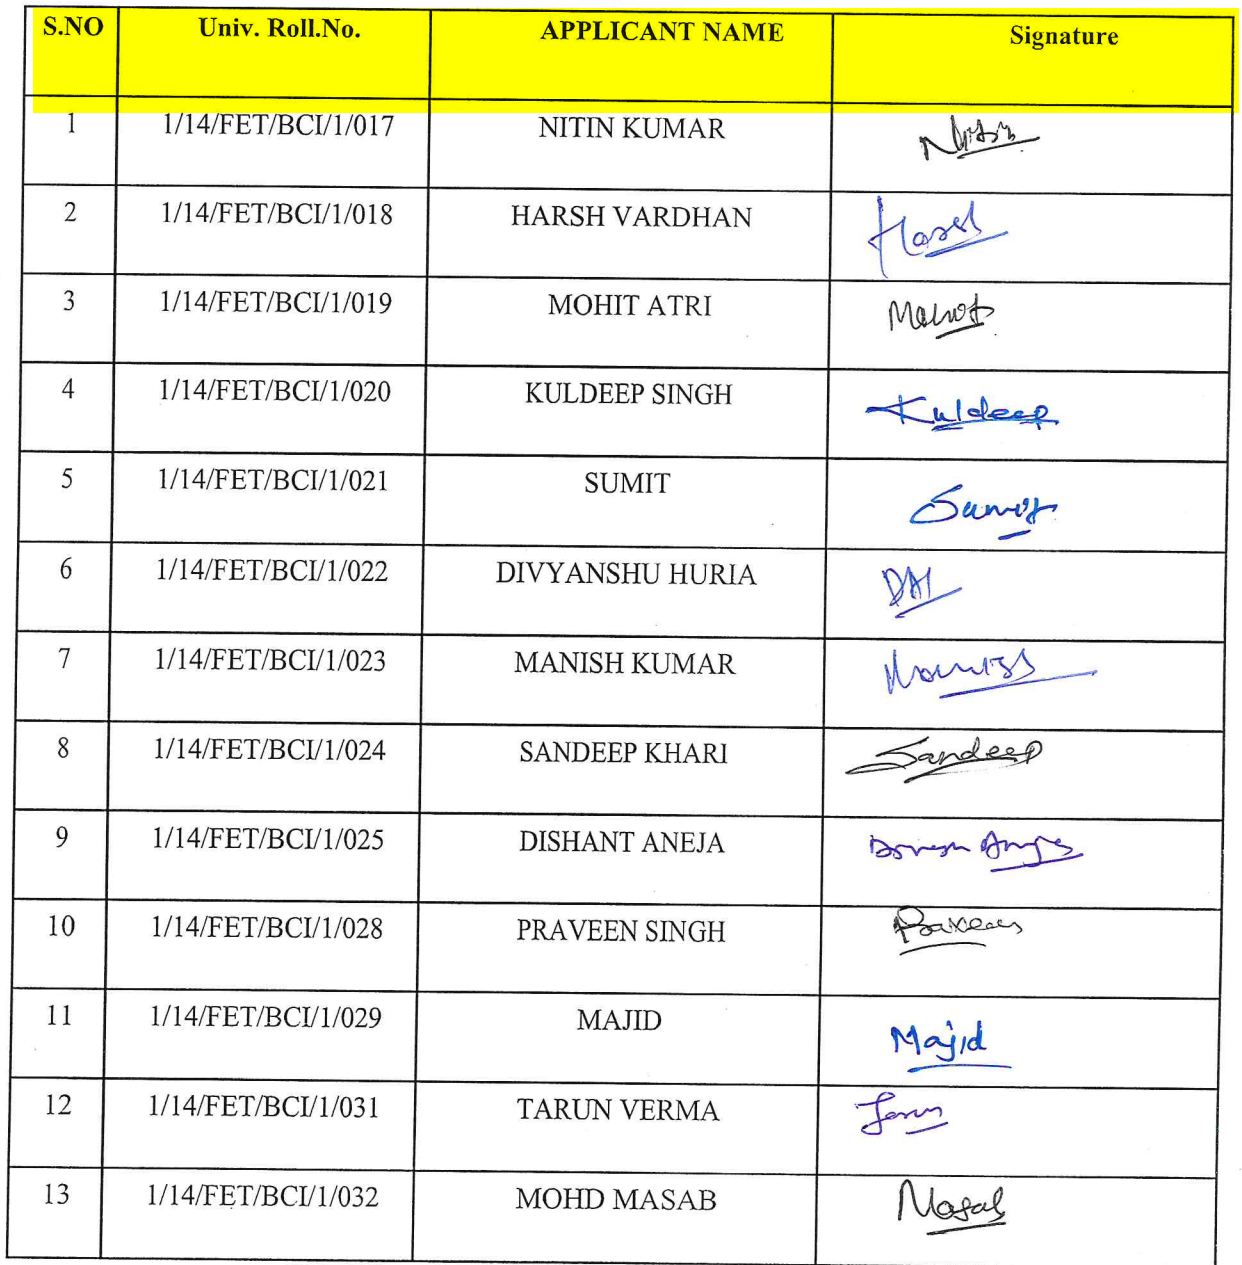 S.NO Univ. Roll.No. APPLICANT NAME Signature
1 1/14/FET/BCI/1/017 NITIN KUMAR Nitin
2 1/14/FET/BCI/1/018 HARSH VARDHAN Harsh
3 1/14/FET/BCI/1/019 MOHIT ATRI Mohit
4 1/14/FET/BCI/1/020 KULDEEP SINGH Kuldeep
5 1/14/FET/BCI/1/021 SUMIT Sumit
6 1/14/FET/BCI/1/022 DIVYANSHU HURIA
7 1/14/FET/BCI/1/023 MANISH KUMAR Manish
8 1/14/FET/BCI/1/024 SANDEEP KHARI Sandeep
9 1/14/FET/BCI/1/025 DISHANT ANEJA
10 1/14/FET/BCI/1/028 PRAVEEN SINGH
11 1/14/FET/BCI/1/029 MAJID Majid
12 1/14/FET/BCI/1/031 TARUN VERMA Tarun
13 1/14/FET/BCI/1/032 MOHD MASAB Masab